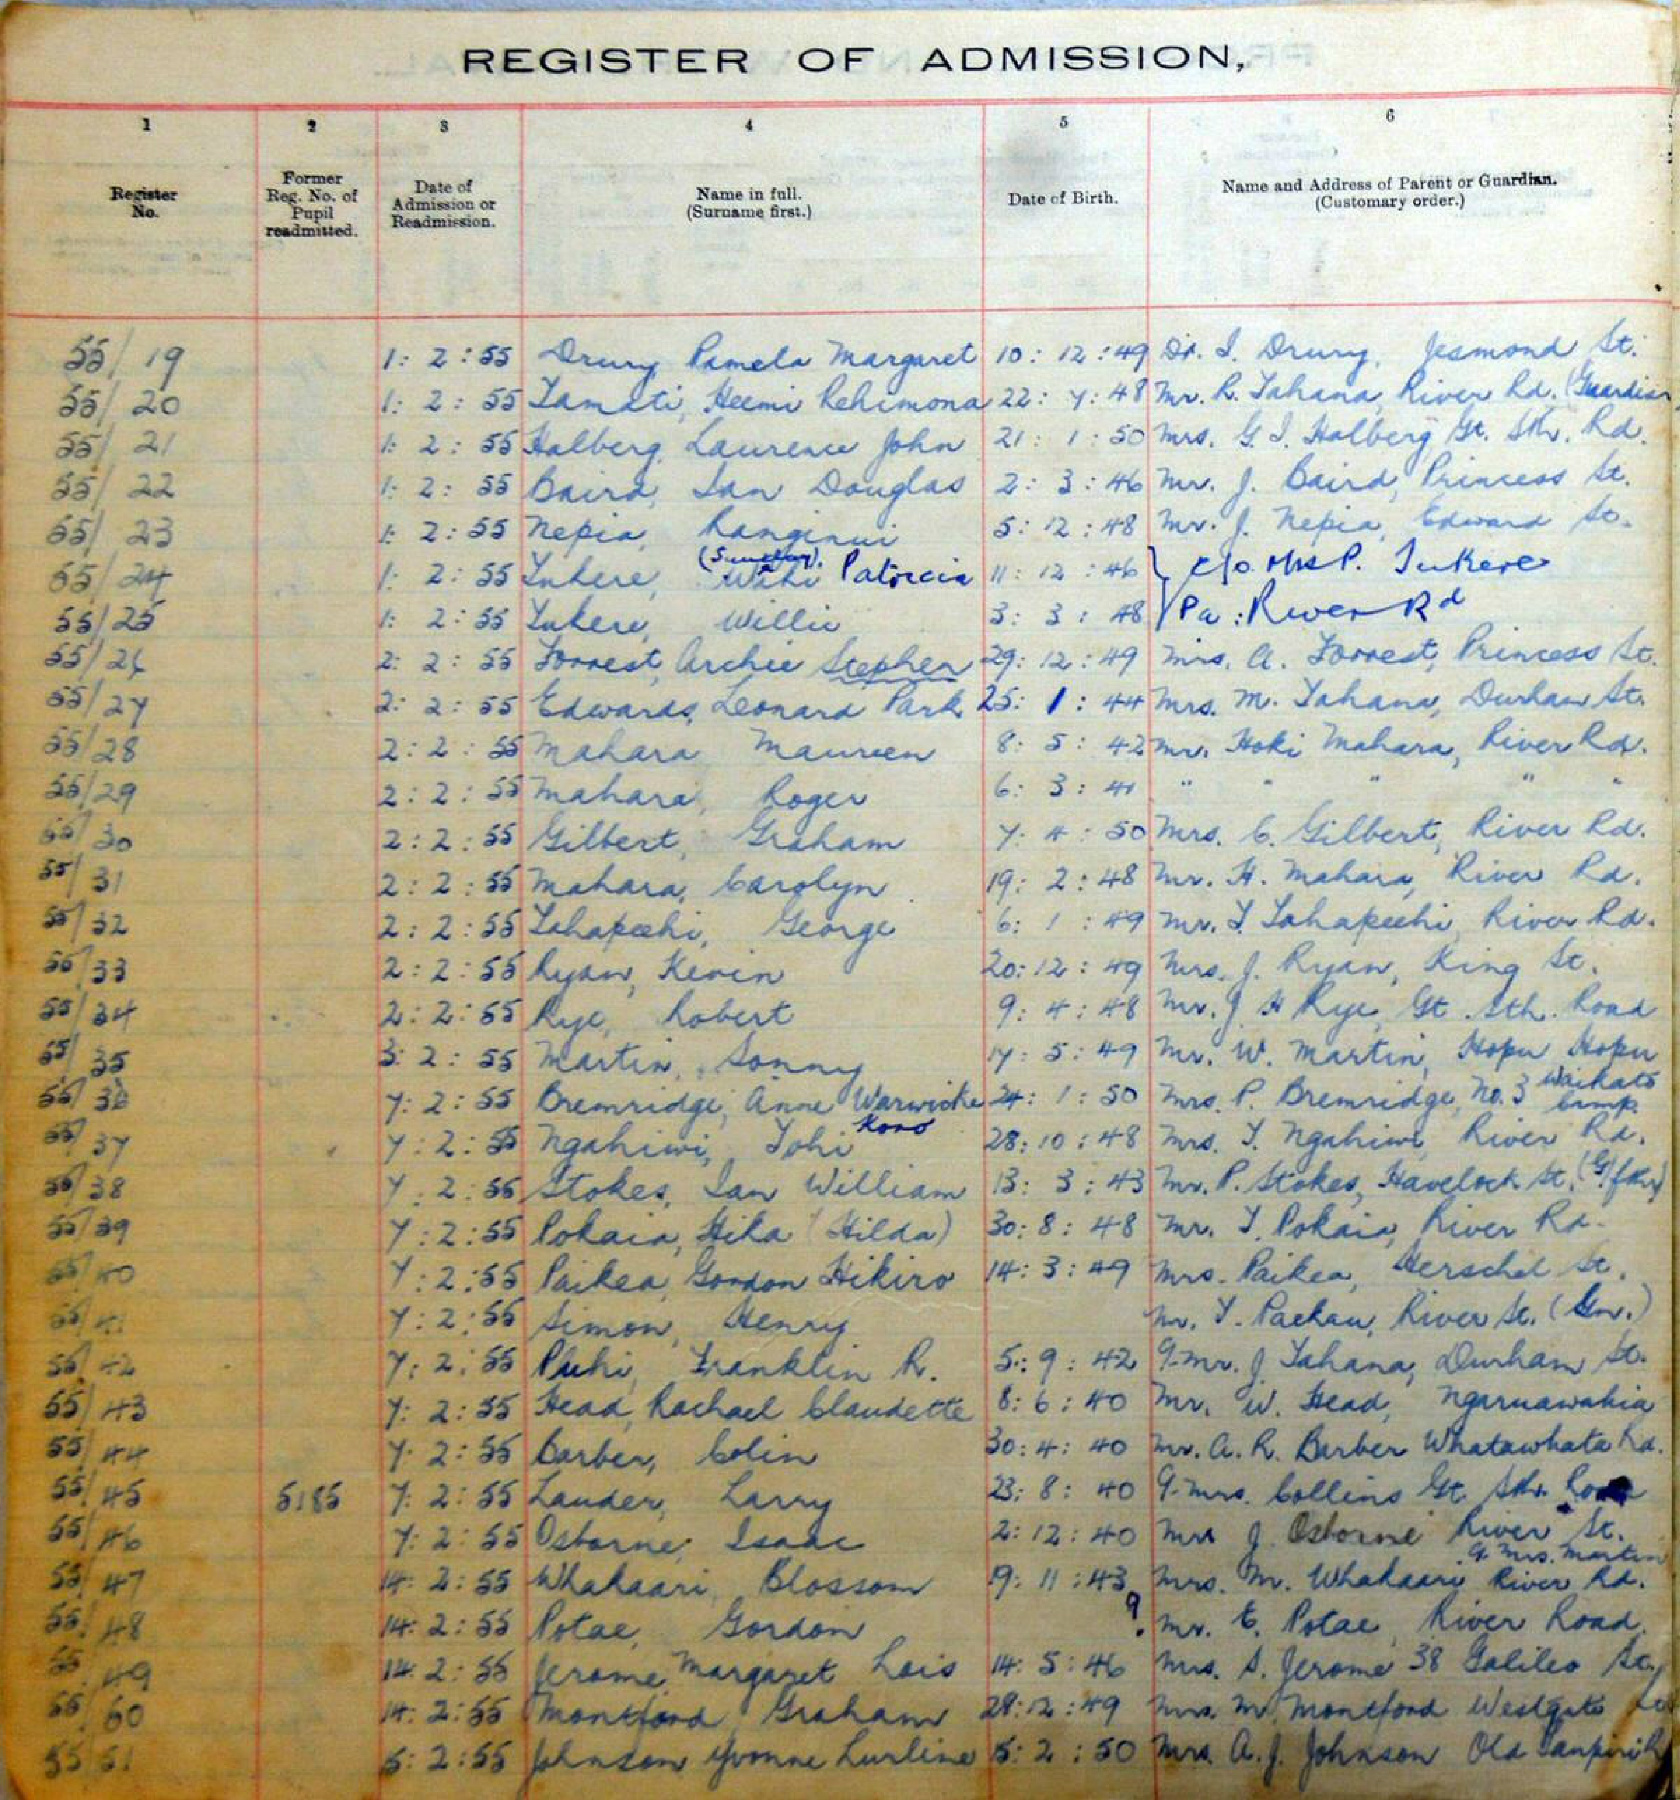 REGISTER OF ADMISSION,
1 2 3 4 5 6
Register No. Former Reg. No. of Pupil readmitted. Date of Admission or Readmission. Name in full. (Surname first.) Date of Birth. Name and Address of Parent or Guardian. (Customary order.)
55/19 1: 2: 55 Drury Pamela Margaret 10: 12: 49 Dr. I. Drury, Jesmond St.
55/20 1: 2: 55 Tamati, Heemi Rehimona 22: 7: 48 Mr. R. Tahana, River Rd. (Guardian
55/21 1: 2: 55 Halberg, Laurence John 21: 1: 50 Mrs. G. I. Halberg Gt. Sth. Rd.
55/22 1: 2: 55 Baird, Ian Douglas 2: 3: 46 Mr. J. Baird, Princess St.
55/23 1: 2: 55 Nepia, Ranginui 5: 12: 48 Mr. J. Nepia, Edward St.
55/24 1: 2: 55 Tukere, Waki Patricia 11: 12: 46 } c/o Mrs P. Tukere
55/25 1: 2: 55 Tukere, Willie 3: 3: 48 Pa: River Rd
55/26 2: 2: 55 Forrest, Archie Stephen 29: 12: 49 Mrs. A. Forrest, Princess St.
55/27 2: 2: 55 Edwards, Leonard Park 25: 1: 44 Mrs. M. Tahana, Durham St.
55/28 2: 2: 55 Mahara Maureen 8: 5: 42 Mr. Hoki Mahara, River Rd.
55/29 2: 2: 55 Mahara, Roger 6: 3: 41 " " " " "
55/30 2: 2: 55 Gilbert, Graham 7: 4: 50 Mrs. C. Gilbert, River Rd.
55/31 2: 2: 55 Mahara, Carolyn 19: 2: 48 Mr. H. Mahara, River Rd.
55/32 2: 2: 55 Tahapeehi, George 6: 1: 49 Mr. T. Tahapeehi, River Rd.
55/33 2: 2: 55 Ryan, Kevin 20: 12: 49 Mrs. J. Ryan, King St.
55/34 2: 2: 55 Rye, Robert 9: 4: 48 Mr. J H Rye, Gt. Sth. Road
55/35 3: 2: 55 Martin, Sonny 17: 5: 49 Mr. W. Martin, Hopu Hopu
55/36 7: 2: 55 Bremridge, Anne Warwicke 24: 1: 50 Mrs. P. Bremridge, No. 3 Waikato Camp.
55/37 7: 2: 55 Ngahiwi, Tohi Koro 28: 10: 48 Mrs. T. Ngahiwi, River Rd.
55/38 7: 2: 55 Stokes, Ian William 13: 3: 43 Mr. P. Stokes, Havelock St. (G/fthr)
55/39 7: 2: 55 Pokaia, Hika (Hilda) 30: 8: 48 Mr. T. Pokaia, River Rd.
55/40 7: 2: 55 Paikea, Gordon Hikiro 14: 3: 49 Mrs. Paikea, Herschel St.
55/41 7: 2: 55 Simon, Henry Mr. T. Paekau, River St. (Gn.)
55/42 7: 2: 55 Puhi, Franklin R. 5: 9: 42 G. Mr. J. Tahana, Durham St.
55/43 7: 2: 55 Head, Rachael Claudette 8: 6: 40 Mr. W. Head, Ngaruawahia
55/44 7: 2: 55 Barber, Colin 30: 4: 40 Mr. A. R. Barber Whatawhata Rd.
55/45 5185 7: 2: 55 Lauder, Larry 23: 8: 40 G. Mrs. Collins Gt. Sth. Road
55/46 7: 2: 55 Osborne, Isaac 2: 12: 40 Mrs J. Osborne River St.
G. Mrs. Martin
55/47 14: 2: 55 Whakaari, Blossom 19: 11: 43 Mrs. M. Whakaari River Rd.
55/48 14: 2: 55 Potae, Gordon ? Mr. E. Potae, River Road.
55/49 14: 2: 55 Jerome Margaret Lois 14: 5: 46 Mrs. S. Jerome 38 Galileo St.
55/50 14: 2: 55 Montford Graham 28: 12: 49 Mrs. M. Montford Westgate St
55/51 5: 2: 55 Johnson Yvonne Lurline 5: 2: 50 Mrs. A. J. Johnson Old Taupiri R